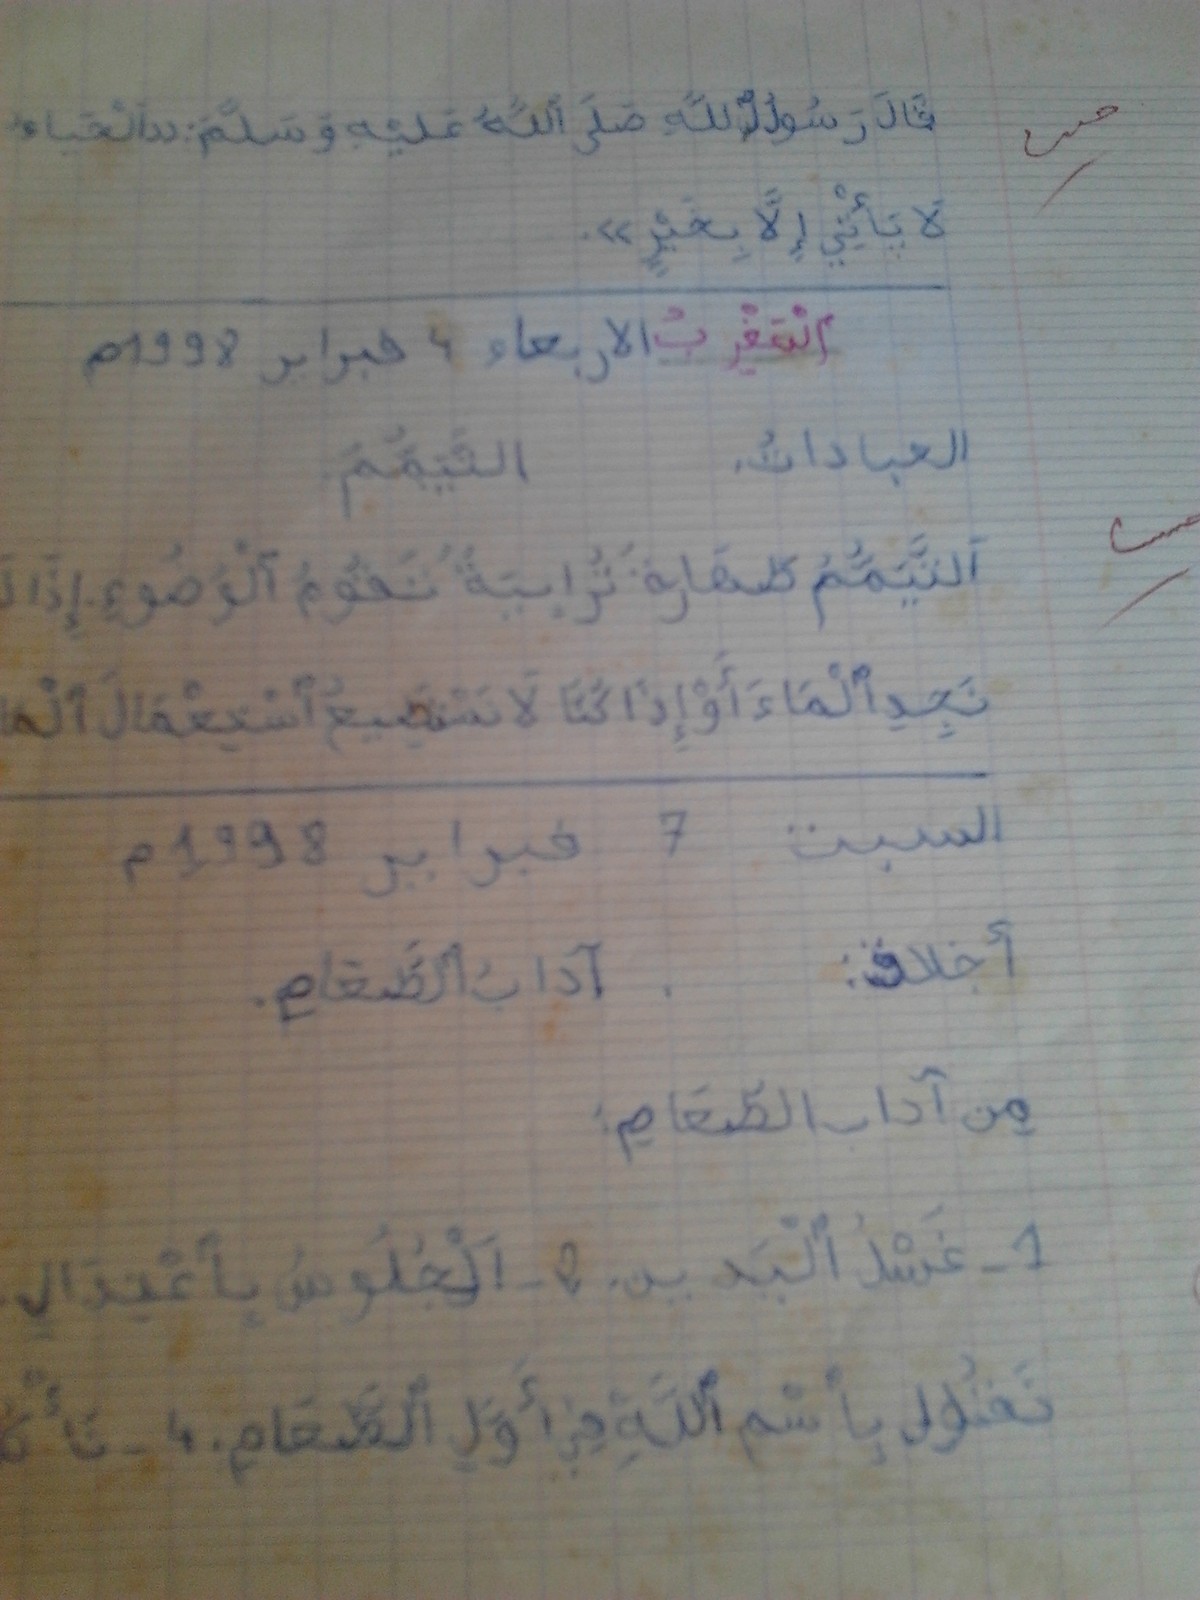 قَالَ رَسُولُ ٱللَّهِ صَلَّى ٱللَّهُ عَلَيْهِ وَسَلَّمَ: «ٱلْحَيَاءُ
حسن
لَا يَأْتِي إِلَّا بِخَيْرٍ».
الاربعاء 4 فبراير 1998م
العبادات. التَّيَمُّمُ
اَلتَّيَمُّمُ طَهَارَةٌ تُرَابِيَةٌ تَعُوِّمُ ٱلْوُضُوءِ. إِذَا
نَجِدِ ٱلْمَاءَ أَوْ إِذَا كُنَّا لَا نَسْتَطِيعُ ٱسْتِعْمَالَ
السبت 7 فبراير 1998م
أخلاق: آدَابُ ٱلطَّعَامِ.
مِن آداب الطَّعَامِ:
1 - غَسْلُ ٱلْيَدَيـن. 2 - اَلْجُلُوسُ بِٱعْتِدَالٍ.
نَقُول بِٱسْمِ ٱللَّهِ فِي أَوَّلِ ٱلطَّعَامِ. 4 -